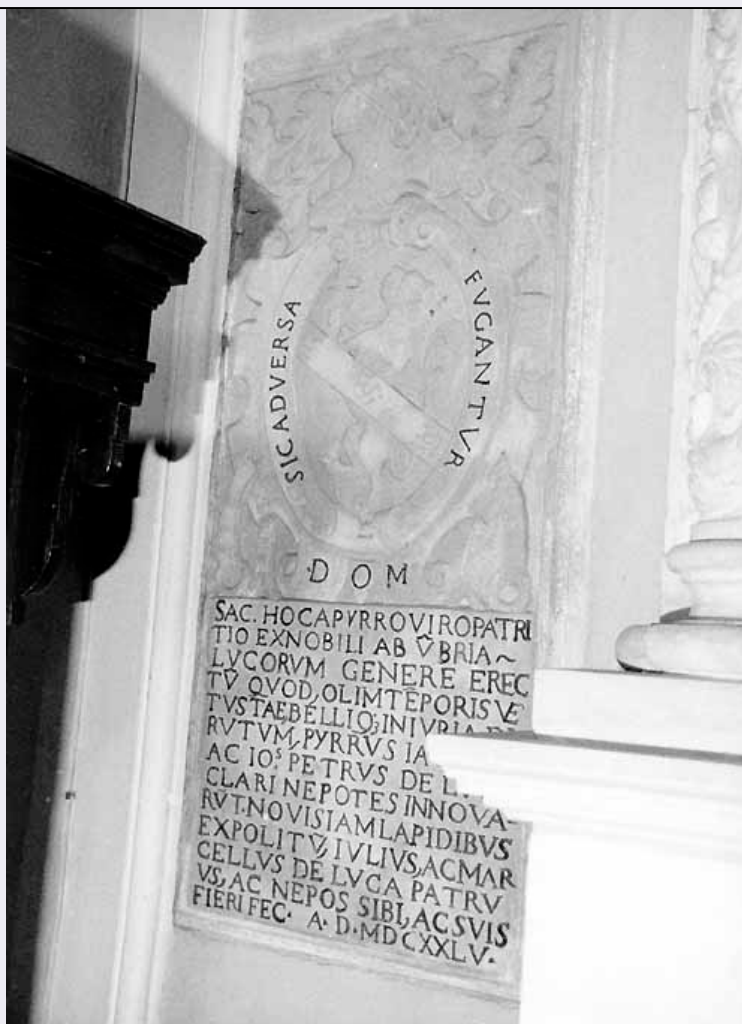 SIC ADVERSA
FUGANTVR
·D O M
SAC. HOC A PYRRO VIRO PATRI
TIO EX NOBILI AB V̂BRIA~
LVCORVM GENERE EREC
TV̄ QVOD, OLIM TĒPORIS VE
TVSTAE, BELLIQ; INIVRIA
RVTVM, PYRRVS
AC IO^S PETRVS DE
CLARI NEPOTES INNOVA-
RV̄T. NOVIS IAM LAPIDIBVS
EXPOLITV̄, IVLIVS, AC MAR
CELLVS DE LVCA PATRV
VS, AC NEPOS SIBI, AC SVIS
FIERI FEC· A· D·MDCXXLV·